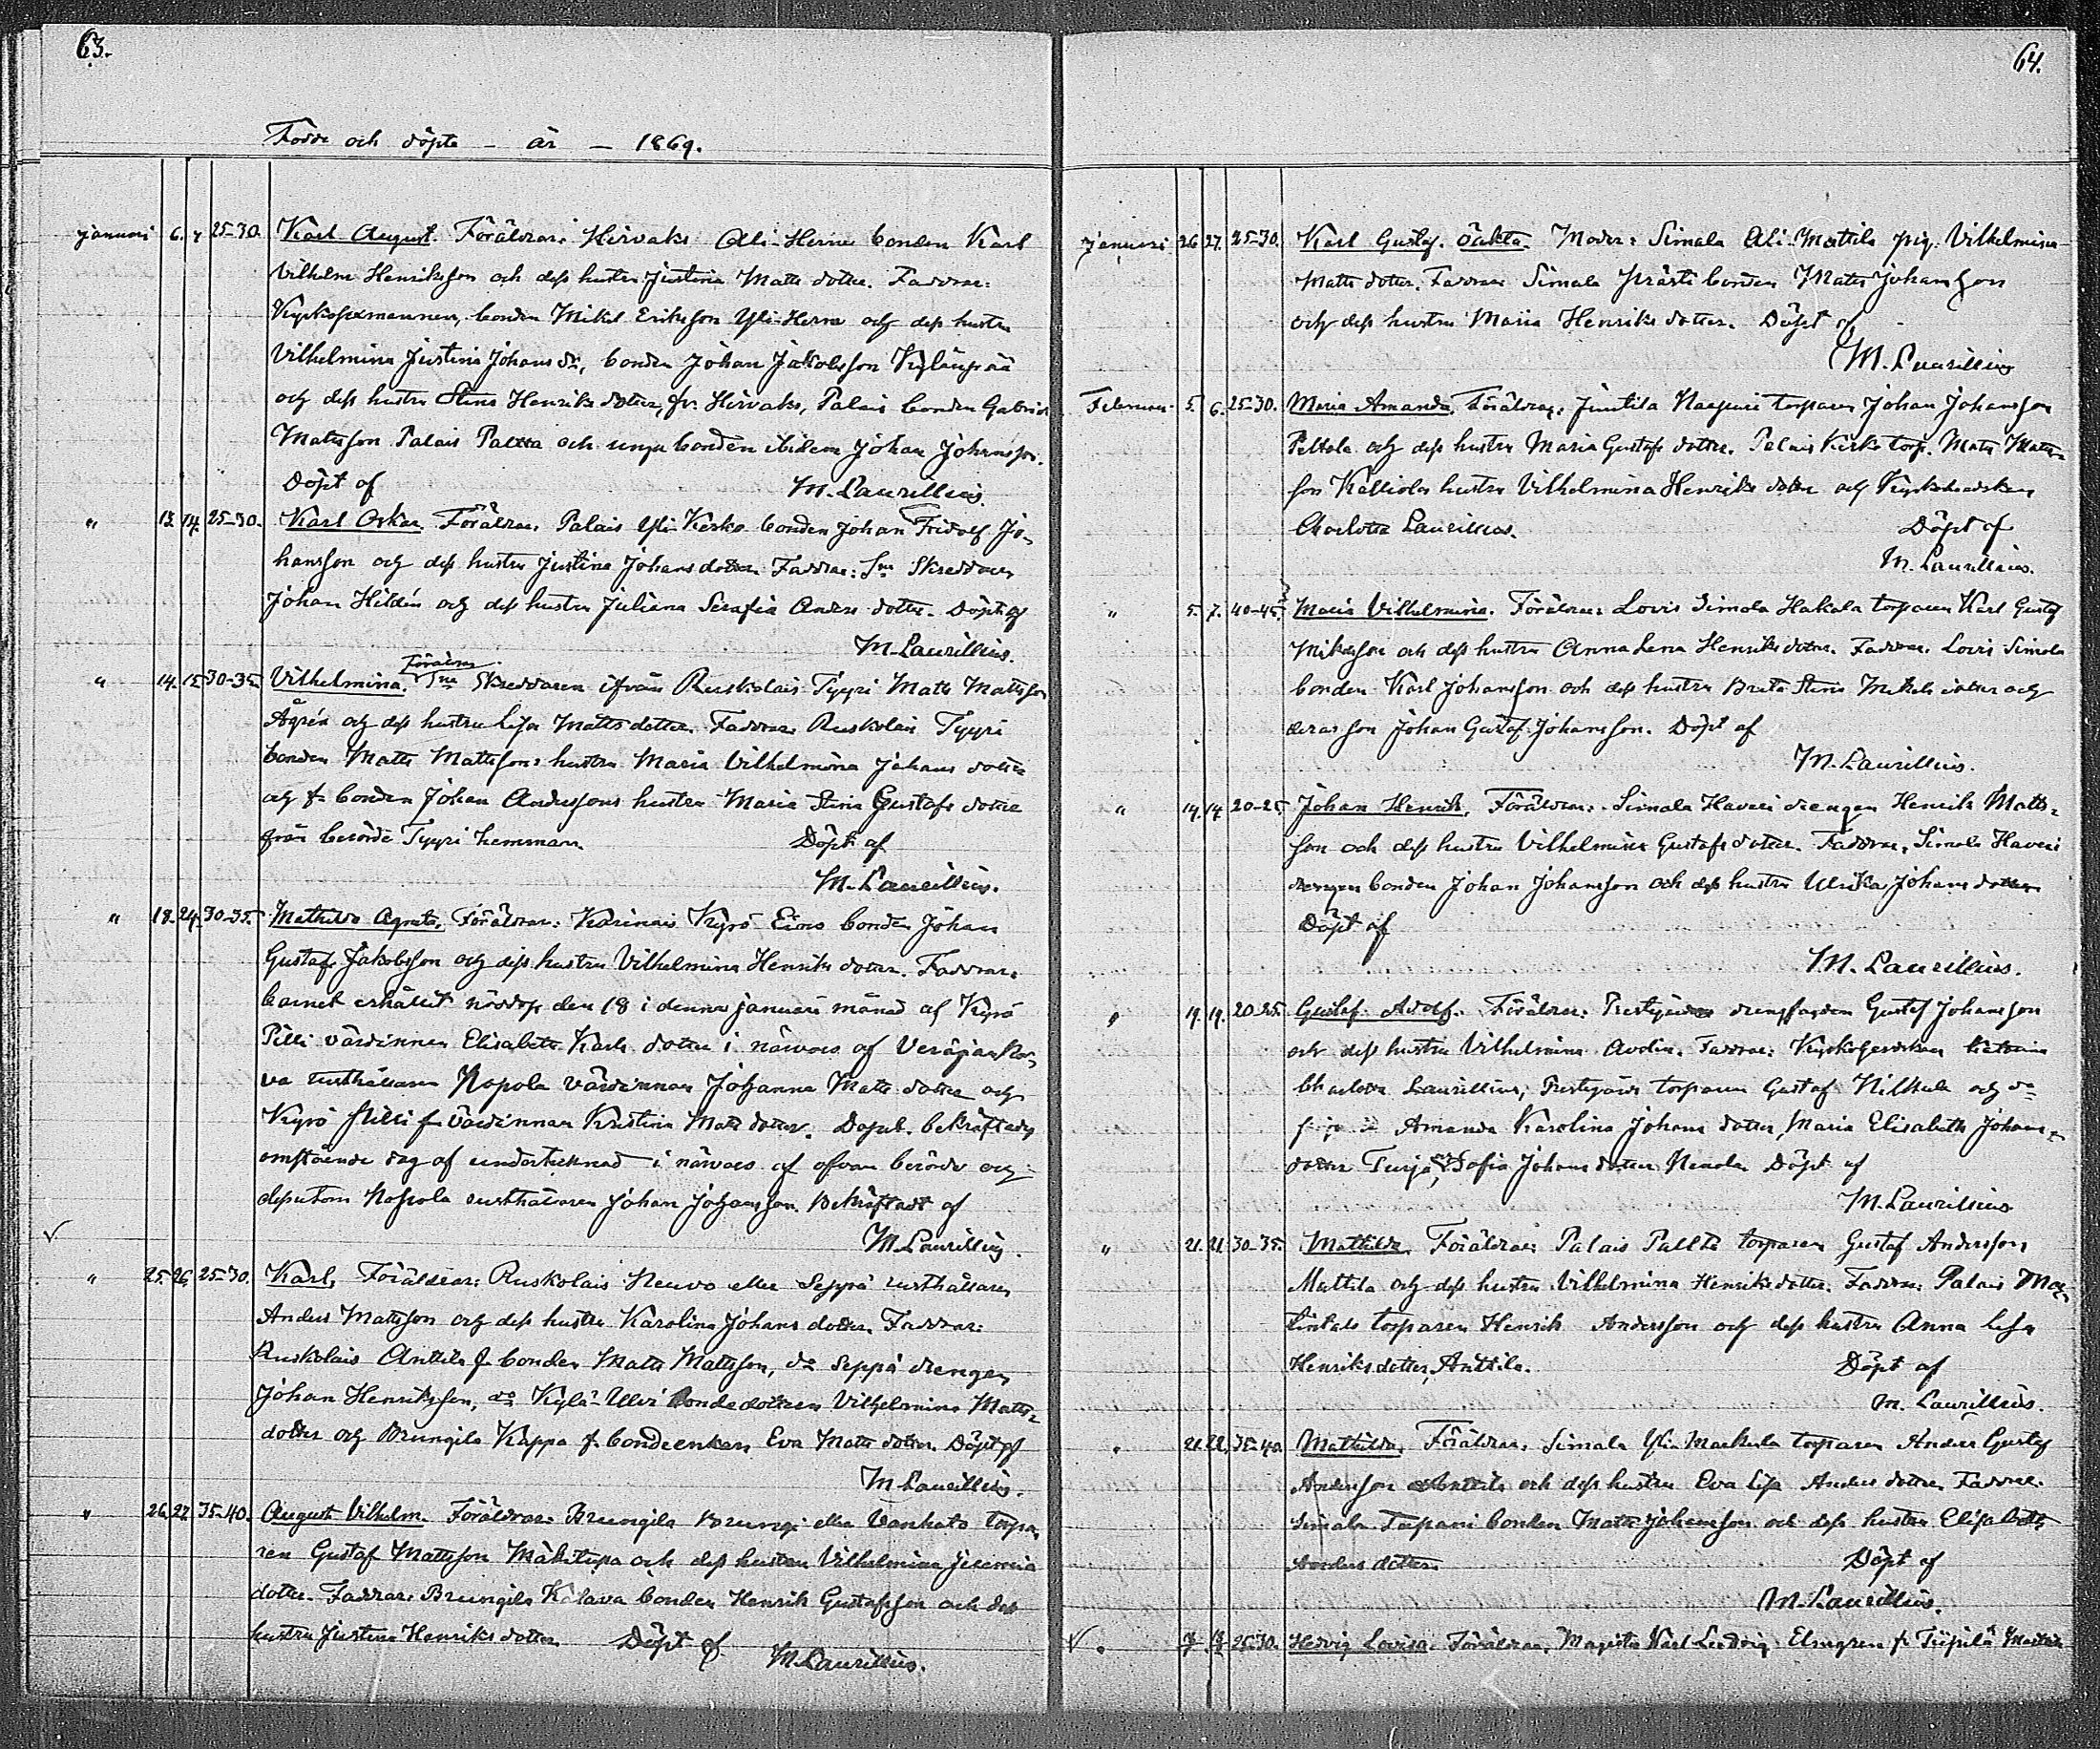 63.
Födde och döpte - år - 1869.
januari 6. 7 25-30. Karl August. Föräldrar: Hirvaks Ali-Herne bonden Karl
Vilhelm Henriksson och dess hustru Justina Matts dotter. Faddrar:
bonden Mikel Eriksson Yli-Herne och dess hustru
Vilhelmina Justina Johans dr, bonden Johan Jakobsson
och dess hustru Stina Henriks dotter fr. Hirvaks, Palais bonden Gabriel
Mattsson Palais Paltta och unga bonden ibidem Johan Johansson.
Döpt af M. Laurillius.
" 13. 14. 25-30. Karl Oskar. Föräldrar: Palais Yli-Kesko bonden Johan Fridolf Jo-
hansson och dess hustru Justina Johans dotter. Faddrar: Snr Skreddaren
Johan Hildén och dess hustru Juliana Serafia Anders dotter. Döpt af
M. Laurillius.
" 14. 15. 30-35. Vilhelmina. Föräldrar Snr Skreddaren ifrån Ruskolais Tyyri Matts Mattsson
Ågrén och dess hustru Lisa Matts dotter. Faddrar: Ruskolais Tyyri
bonden Matts Mattssons hustru Maria Vilhelmina Johans dotter
och f. bonden Johan Anderssons hustru Maria Stina Gustafs dotter
från berörde Tyyri hemman. Döpt af
M. Laurillius.
" 18. 24. 30-35. Mathilda Agneta. Föräldrar: Karinais Kyrö-Eino bonden Johan
Gustaf Jakobsson och dess hustru Vilhelmina Henriks dotter. Faddrar:
barnet erhållit nöddop den 18 i denna januari månad af Kyrö
Pilli värdinnan Elisabeth Karls dotter i närvaro af Veräjänkor-
va rusthållaren Nopola värdinnan Johanna Matts dotter och
Kyrö Pilli f. värdinnan Kristina Matts dotter. Dopet bekräftades
omstående dag af undertecknad i närvaro af ofvan berörde och
dessutom Nopola rusthållaren Johan Johansson. Bekräftadt af
M. Laurillius.
" 25. 26. 25-30. Karl, Föräldrar: Ruskolais Neuvo eller Seppä rusthållaren
Anders Mattsson och dess hustru Karolina Johans dotter. Faddrar:
Ruskolais Anttila f. bonden Matts Mattsson, do Seppä drengen
Johan Henriksson, do Kylä-Ulvi bondedottren Vilhelmina Matts-
dotter och Brungila Kappa f. bondeenkan Eva Matts dotter. Döpt af
M. Laurillius.
" 26. 27. 35-40. August Vilhelm. Föräldrar: Brungila eller Vanhato torpa-
ren Gustaf Mattsson Mäkitupa och dess hustru Vilhelmina Jeremia
dotter. Faddrar: Brungila Kalava bonden Henrik Gustafsson och dess
hustru Justina Henriks dotter. Döpt af
M. Laurillius.
64.
Januari 26. 27. 25-30. Karl Gustaf. oäkta. Moder: Simala Ali-Mattila pig. Vilhelmina
Matts dotter. Faddrar Simala Prästi bonden Matts Johansson
och dess hustru Maria Henriks dotter. Döpt af
M. Laurillius
Februari 5. 6. 25-30. Maria Amanda. Föräldrar: Juntila torparen Johan Johansson
Peltola och dess hustru Maria Gustafs dotter. Palais Kesko torp. Matts Matts-
son Kalliolas hustru Vilhelmina Henriks dotter och
Charlotta Laurillius. Döpt af
M. Laurillius.
" 5. 7. 40-45. Maria Vilhelmina. Föräldrar: Lovis Simola Hakala torparen Karl Gustaf
Mikelsson och dess hustru Anna Lena Henriks dotter. Faddrar: Lovis Simola
bonden Karl Johansson och dess hustru Brita Stina Mikels dotter och
deras son Johan Gustaf Johansson. Döpt af
M. Laurillius.
" 14. 14. 20-25. Johan Henrik. Föräldrar: Simala Haveri drengen Henrik Matts-
son och dess hustru Vilhelmina Gustafs dotter. Faddrar: Simala Haveri
bonden Johan Johansson och dess hustru Ulrika Johans dotter
Döpt af
M. Laurillius.
" 19. 19. 20-25. Gustaf Adolf. Föräldrar: Prestgårds Gustaf Johansson
och dess hustru Vilhelmina. Faddrar:
Charlotta Laurillius, Prestgårds torparen Gustaf och do
Amanda Karolina Johans dotter, Maria Elisabeth Johans-
dotter, Sofia Johans dotter. Döpt af
M. Laurillius
" 21. 21. 30-35. Mathilda. Föräldrar: Palais Paltta torparen Gustaf Andersson
Mattila och dess hustru Vilhelmina Henriksdotter. Faddrar: Palais
torparen Henrik Andersson och dess hustru Anna Lisa
Henriksdotter Anttila. Döpt af
M. Laurillius.
" 21. 22. 35-40. Mathilda, Föräldrar: Simala Yli-Markula torparen Anders Gustaf
Andersson och dess hustru Eva Lisa Anders dotter. Faddrar:
Simala Tapani bonden Matts Johansson och dess hustru Elisabeth
Anders dotter. Döpt af
M. Laurillius.
25-30. Hedvig Lovisa. Föräldrar, Magister Karl Ludvig Elmgren fr.